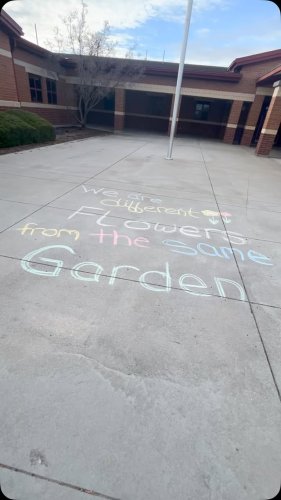 We are
different
Flowers
from the same
Garden